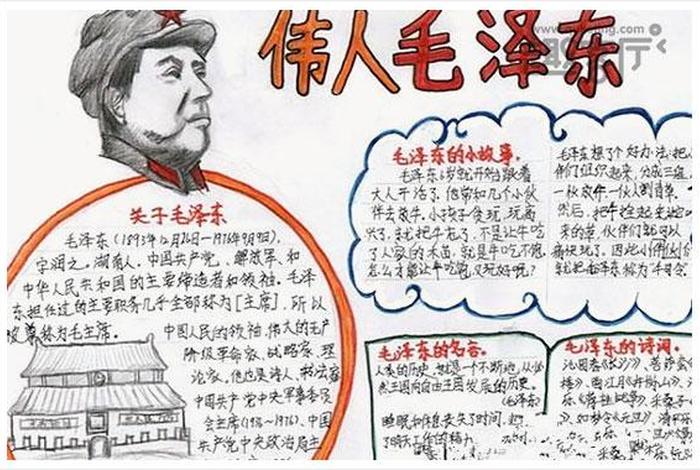 伟人毛泽东
关于毛泽东
毛泽东(1893年12月26日—1976年9月9日),
字润之,湖南人。中国共产党、解放军、和
中华人民共和国的主要缔造者和领袖。毛泽
东担任过的主要职务几乎全部称为[主席],所以
被尊称为毛主席。
中国人民的领袖,伟大的无产
阶级革命家、战略家、理
论家,他也是诗人、书法家
中国共产党中央军事委员
会主席(1936—1976)、中国
共产党中央政治局主
毛泽东的小故事。
毛泽东6岁就开始跟着
大人干活了。他常和几个小伙
伴去放牛。小孩子贪玩,玩高
兴了,就把牛忘了,不是让牛吃
了人家的禾苗,就是牛吃不饱。
怎么才能让牛吃饱,又玩好呢?
毛泽东想了个好办法:把
伴们组织起来,分成三
一伙放牛一伙人割青草。
然后,把牛拴起来
来的草,伙伴们就可以
痛快玩了。因此小伙伴们
就把毛泽东称为"牛司令"
毛泽东的名言。
人类的历史,就是一个不断地从必
然王国向自由王国发展的历史。
(毛泽东)
睡眠和休息丧失了时间,却
了明天工作的精力
毛泽东的诗词。
沁园春《长沙》、菩萨蛮
楼》、西江月《井冈山》、
乐《蒋桂战争》、采桑子
》、如梦令《元旦》、清平